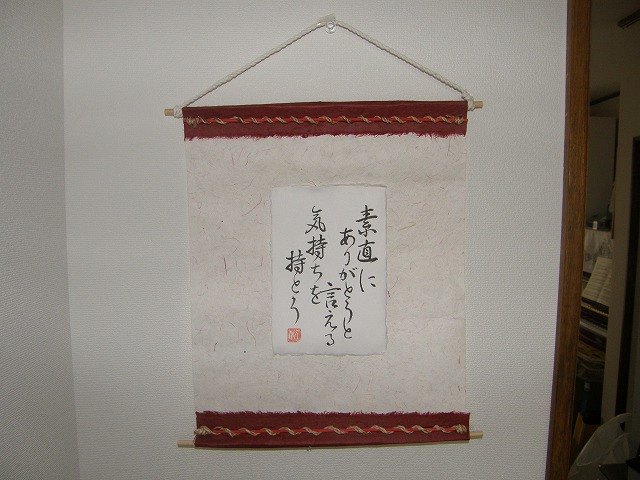 素直に
ありがとうと
言える
気持ちを
持とう